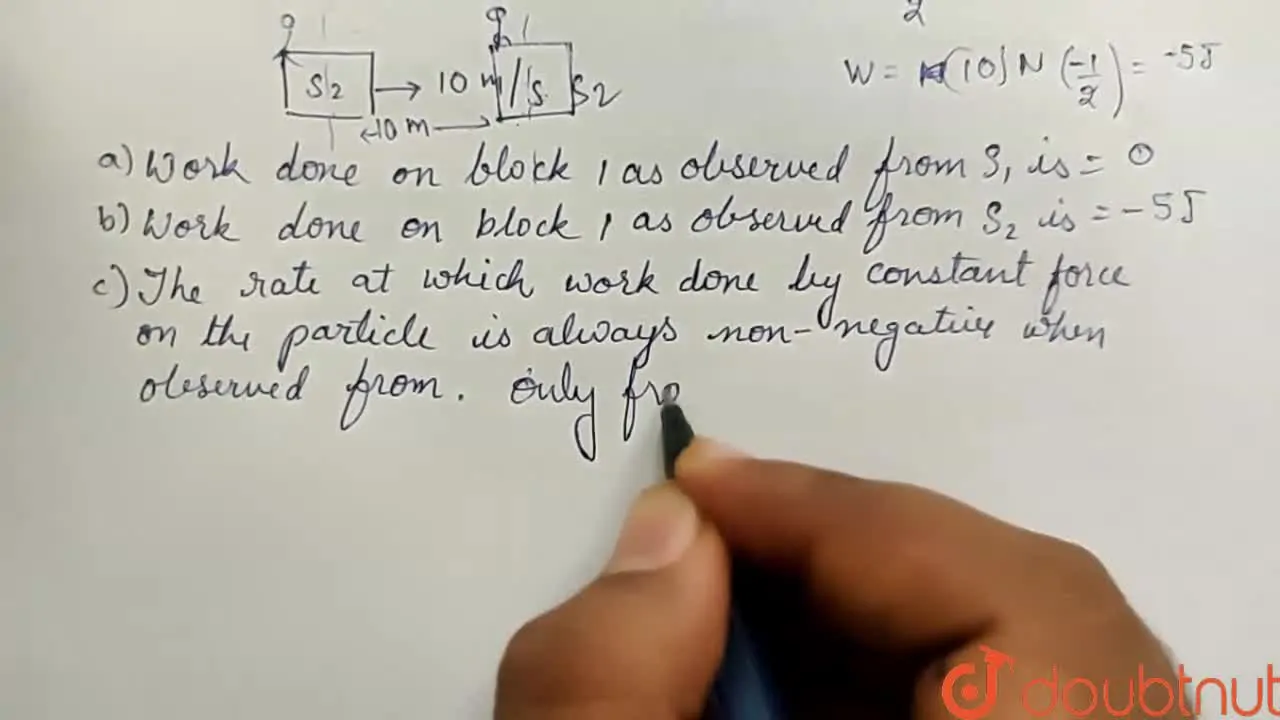 2
W = (10) N (-1/2) = -5J
S2 → 10 m/s S2
←10 m→
a) Work done on block 1 as observed from S1 is = 0
b) Work done on block 1 as observed from S2 is = -5J
c) The rate at which work done by constant force
on the particle is always non-negative when
observed from. only fro
doubtnut